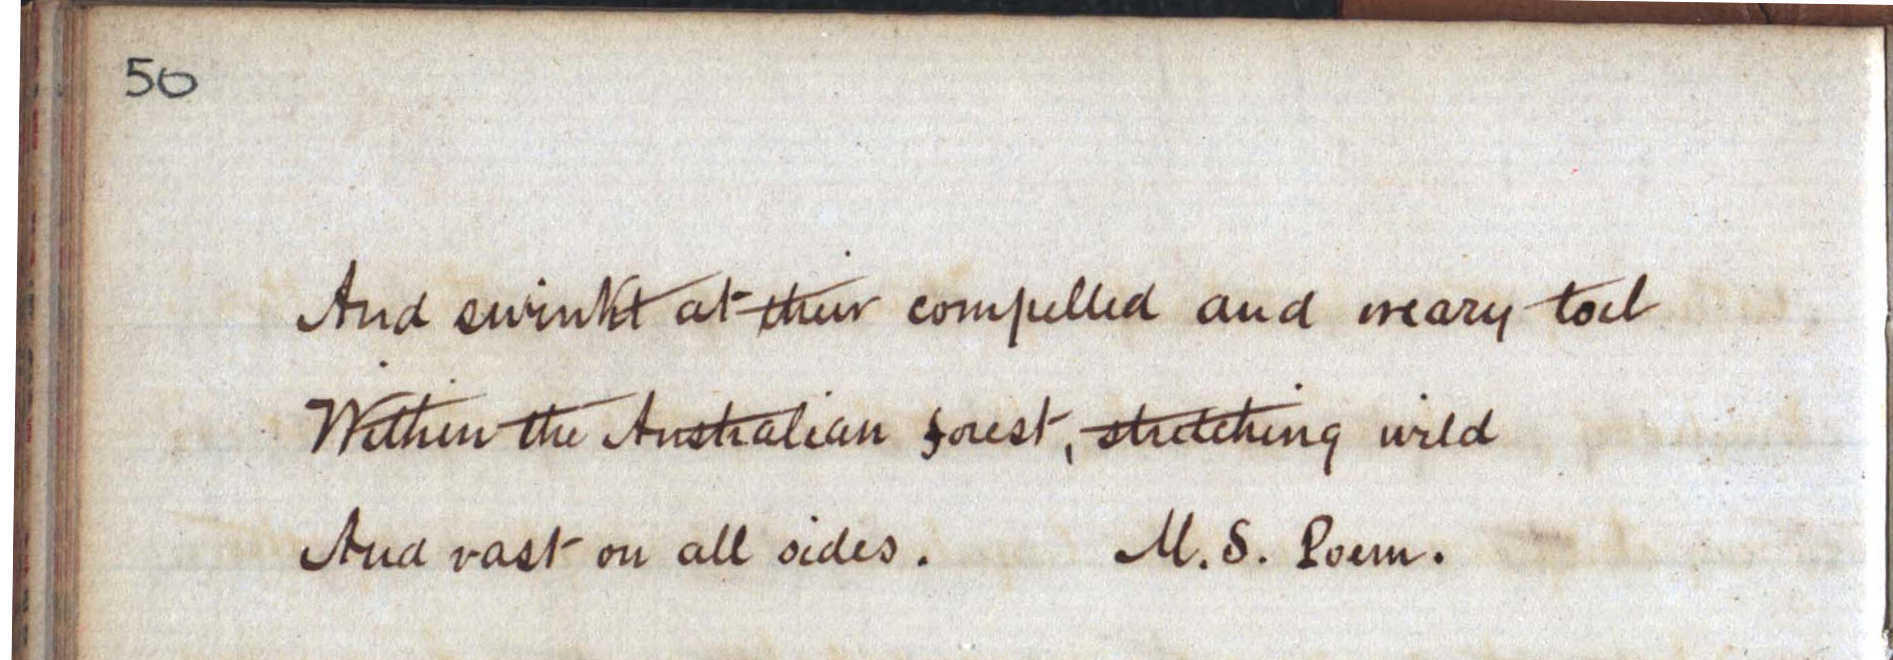 50
And swinkt at their compelled and weary toil
Within the Australian forest, stretching wild
And vast on all sides. M.S. Poem.